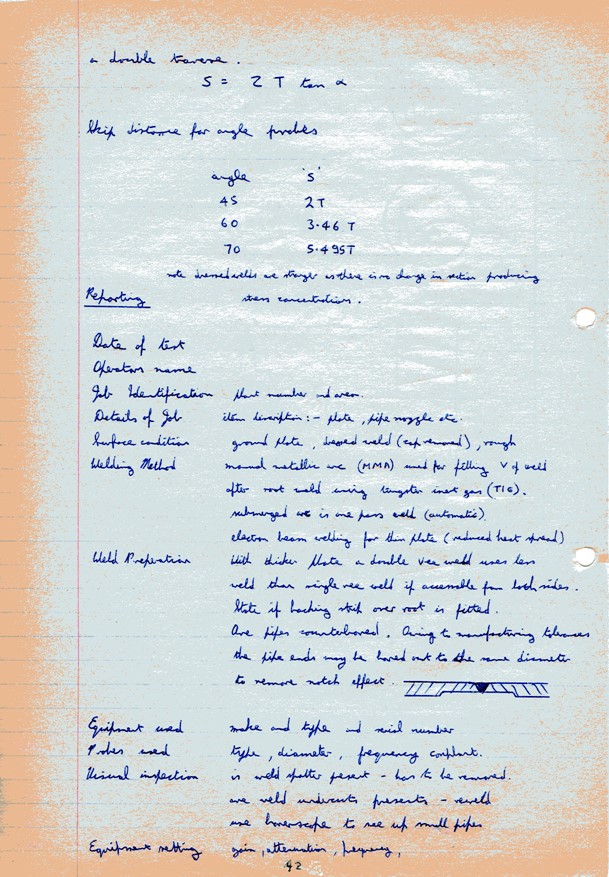 a double traverse.
S = 2 T tan α
Skip distance for angle probes
angle 'S'
45 2T
60 3·46 T
70 5·495T
note dressed welds are stronger as there is no change in section producing
Reporting stress concentrations.
Date of test
Operators name
Job Identification plant number and area.
Details of Job item description:- plate, pipe nozzle etc.
Surface condition ground plate, dressed weld (cap removed), rough
Welding Method manual metallic arc (MMA) used for filling V of weld
after root weld using tungsten inert gas (TIG).
submerged arc is one pass weld (automatic)
electron beam welding for thin plate (reduced heat spread)
Weld Preperation With thicker plate a double vee weld uses less
weld than single vee weld if accessable from both sides.
State if backing strip over root is fitted.
Are pipes counterbored. Owing to manufacturing tolerances
the pipe ends may be bored out to the same diameter
to remove notch effect.
Equipment used make and type and serial number
Probes used type, diameter, frequency couplant.
Visual inspection is weld spatter pesent - has to be removed.
are weld undercuts presents - reweld
use borerscope to see up small pipes
Equipment setting gain, attenuation, frequency,
42